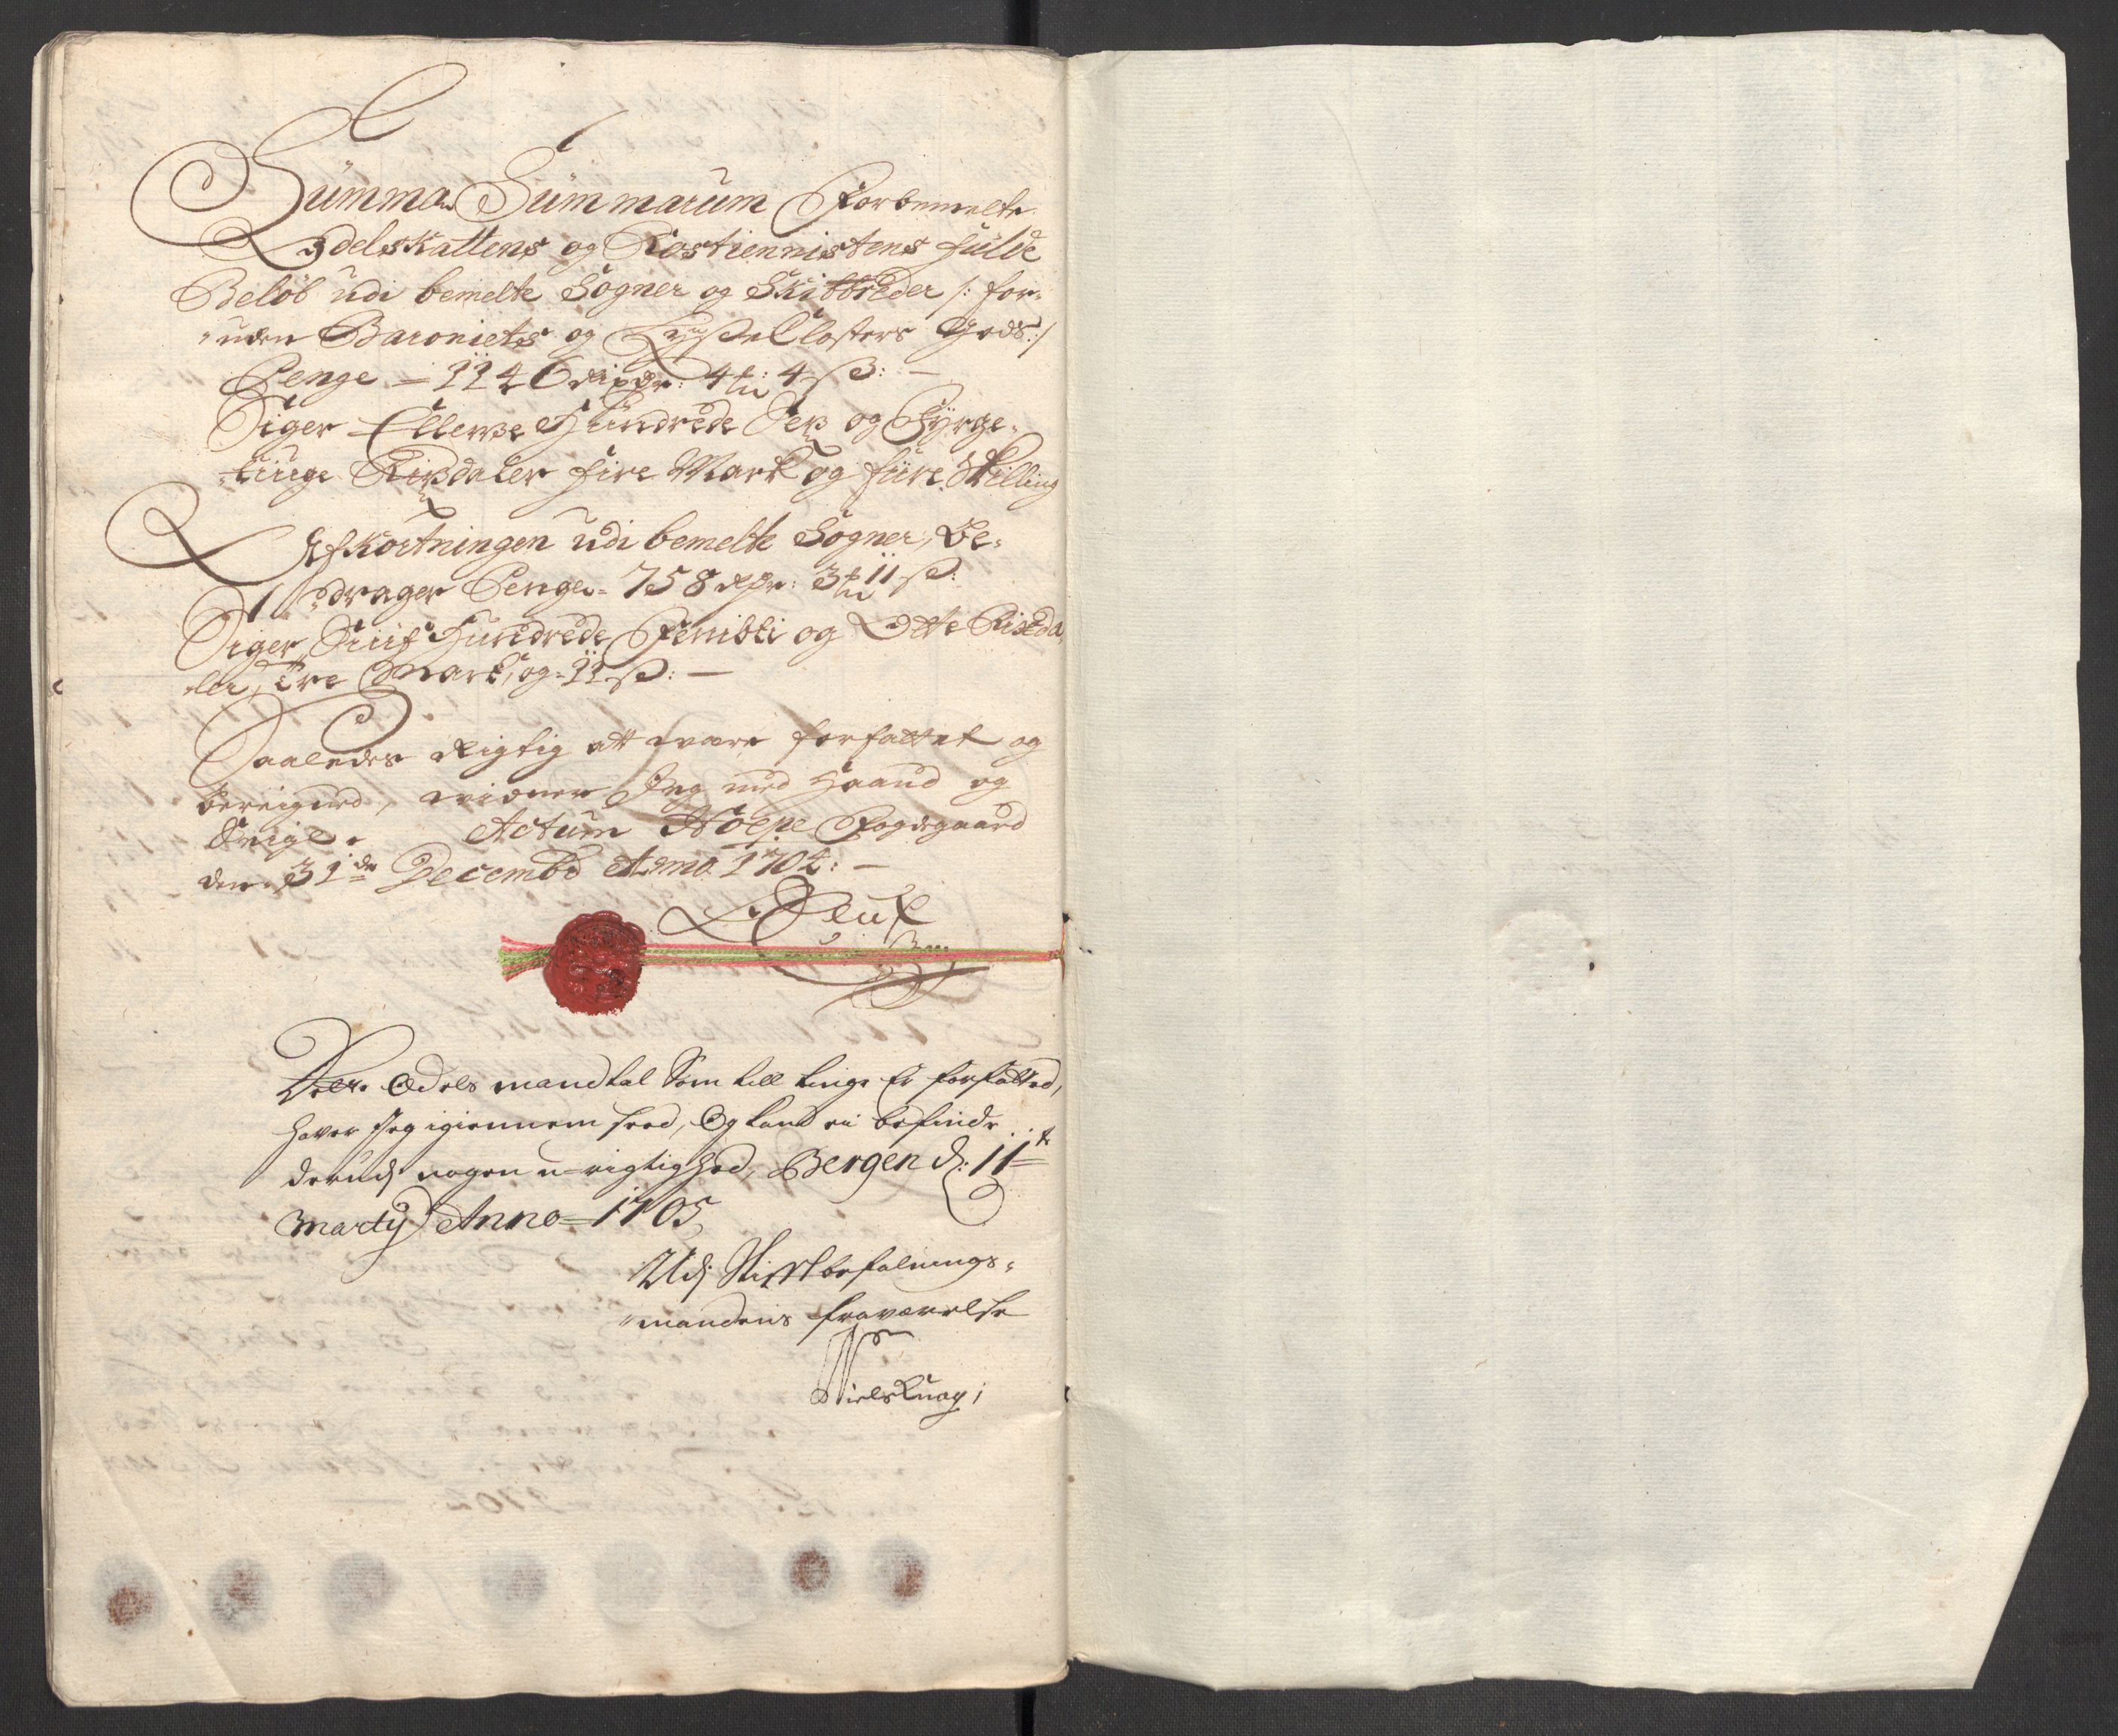 Summa Summarum Forbemelte
Odelskattens og Rostiennistens fulde
Beløb udi bemelte Sogner og Skibbreder /: for-
uden Baroniets og LysseClosters Gods :/
Penge - 1146 Rixdr: 4 mk: 4 ß: -
Siger Ellewe Hundrede Sex og Fyrge-
tiuge Rixdaler fire Mark og fiire Skilling
Afkortningen udi bemelte Sogner, Be-
drager Penge - 758 Rdr: 3 mk 11 ß:
Siger Siuf Hundrede Femti og Otte Rixda
ler, Tre Mark, og - 11 ß: -
Saaledes Rigtig att være forfattet og
bereigned, vidner Jeg med Haand og
Seigl. Actum Hope Fogdgaard
den 31de Decembr Anno 1704: -
Denne Odels mandtal Som till tinge Er forfatted,
hafver Jeg igiennem seed, Og kand ei befinde
derudj nogen u-rigtighed, Bergen d: 11te
Marty Anno 1705
Udj Stiftbefalnings-
mandens fraværelse
Niels Knag